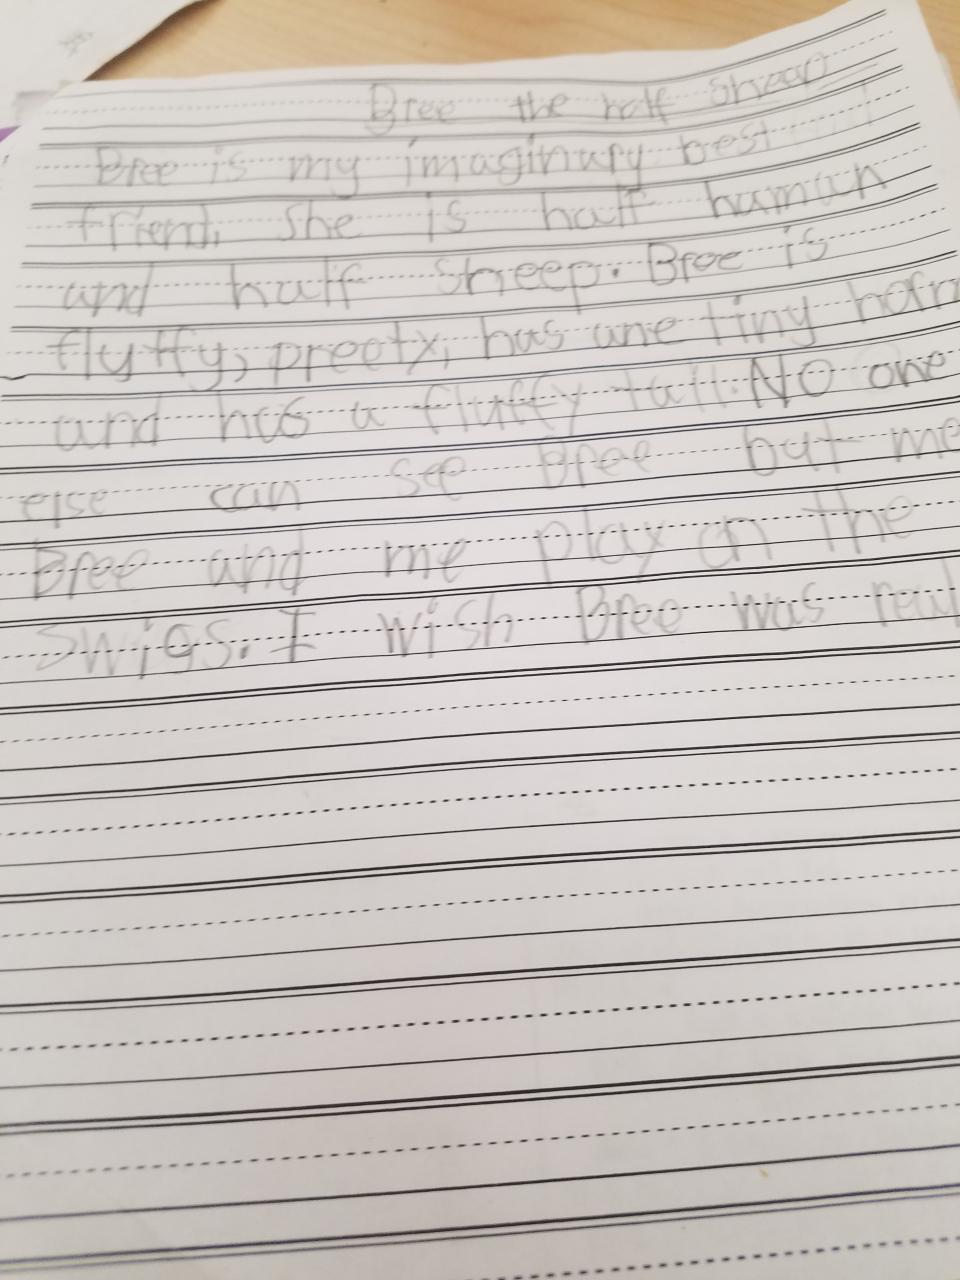 Bree the half sheep
Bree is my imaginary best
friend. She is half human
and half sheep. Bree is
flyffy, preetx, has one tiny horn
and has a fluffy tall. NO one
else can see Bree but me
Bree and me play on the
swigs. I wish Bree was real